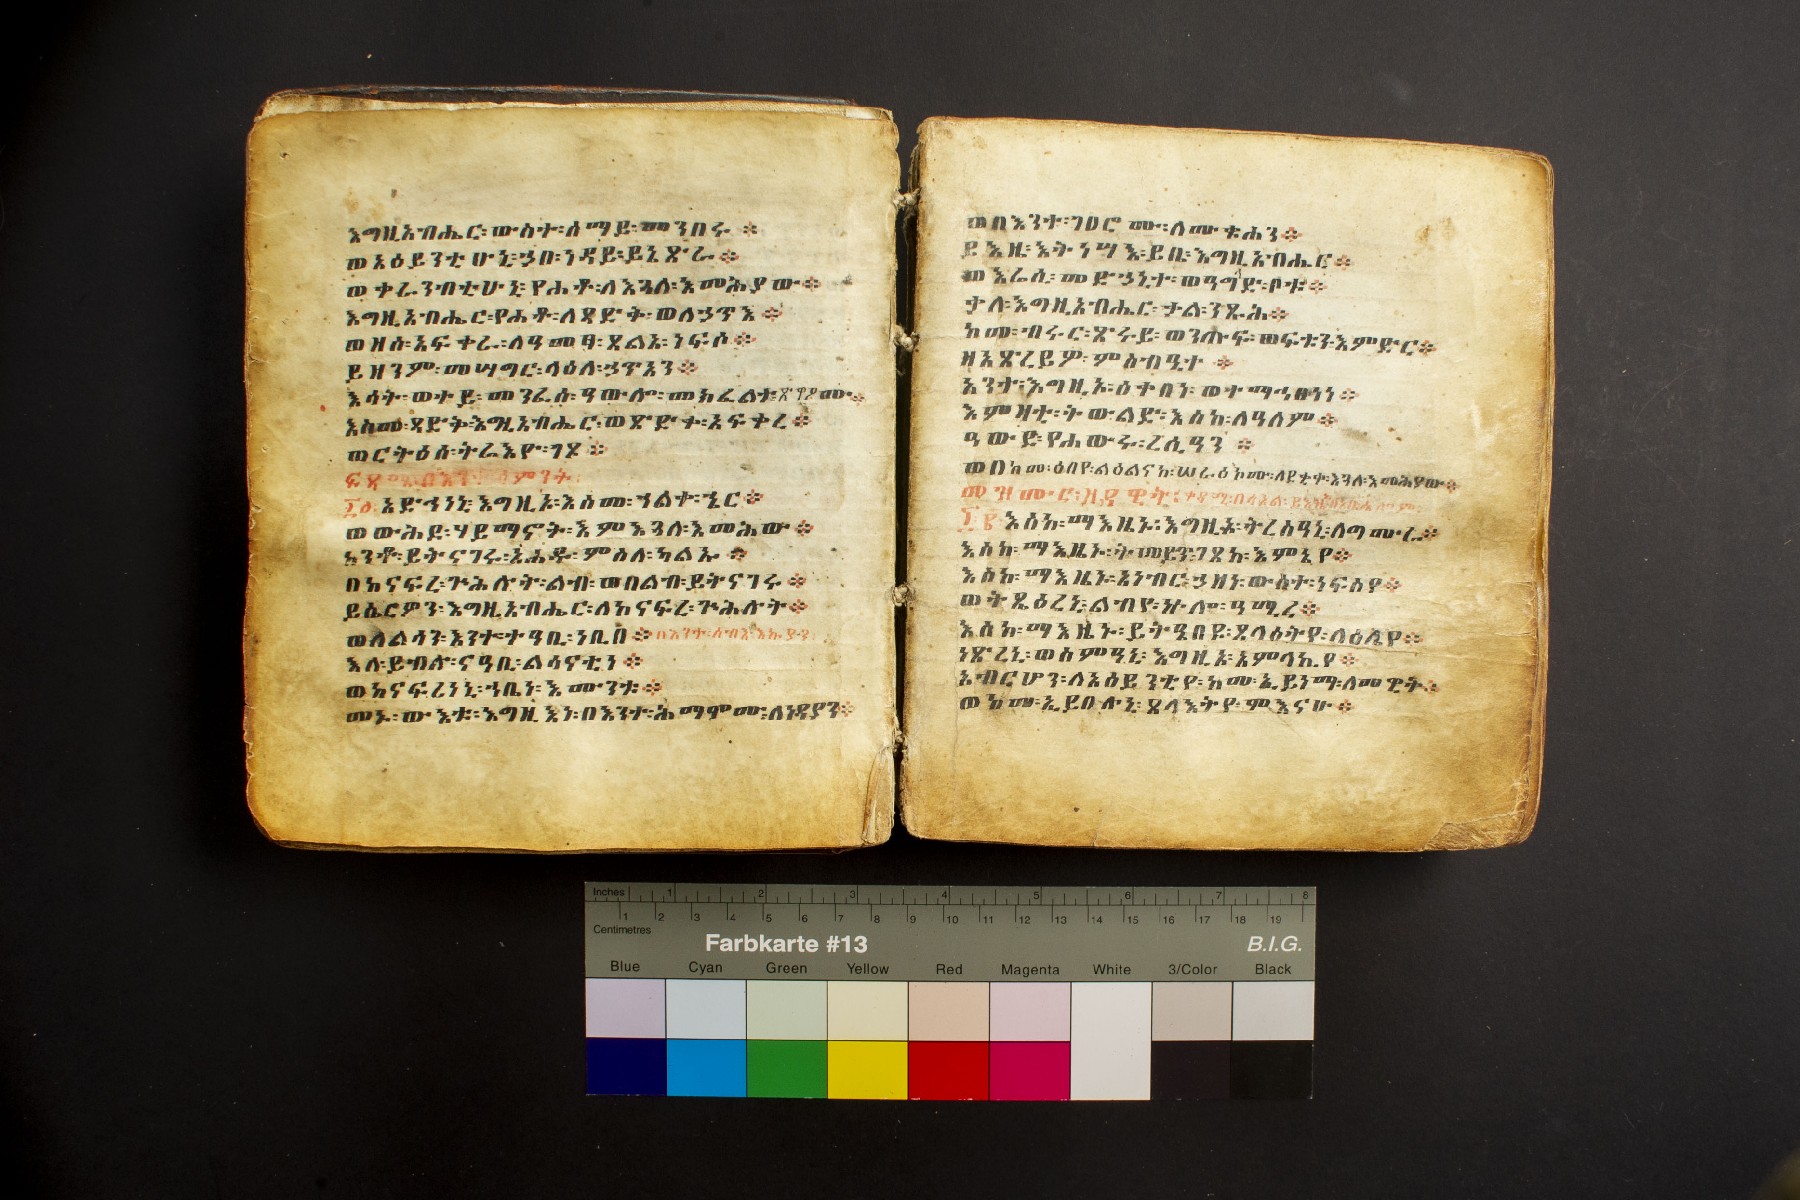 እግዚአብሔር፡ውስተ፡ሰማይ፡መንበሩ፨
ወአዕይንቲሁኒ፡ኃበ፡ነዳይ፡ይኔጽራ፨
ወቀራንብቲሁኒ፡የሐቶ፡ለእጓለ፡እመሕያው፨
እግዚአብሔር፡የሐቶ፡ለጻድቅ፡ወለኃጥእ፨
ወዘሰ፡አፍቀራ፡ለዓመፃ፡ጸልአ፡ነፍሶ፨
ይዘንም፡መሣግር፡ላዕለ፡ኃጥአን፨
እሳት፡ወተይ፡መንፈሰ፡ዓውሎ፡መክፈልተ፡ጽዋዖሙ፨
እስመ፡ጻድቅ፡እግዚአብሔር፡ወጽድቀ፡አፍቀረ፨
ወርትዕሰ፡ትሬእዮ፡ገጾ፨
ፍጻሜ፡በእንተ፡ሰምንት፡
፲፩ አድኅነኒ፡እግዚኦ፡እስመ፡ኀልቀ፡ኄር፨
ወውሕደ፡ሃይማኖት፡እምእጓለ፡እመሕው፨
ከንቶ፡ይትናገሩ፡አሐዱ፡ምስለ፡ካልኡ፨
በከናፍረ፡ጕሕሉት፡ልብ፡ወበልብ፡ይትናገሩ፨
ይሤርዎን፡እግዚአብሔር፡ለከናፍረ፡ጕሕሉት፨
ወለልሳን፡እንተ፡ተዓቢ፡ነቢበ፨
እለ፡ይብሉ፡ናዓቢ፡ልሳናቲነ፨
ወከናፍሪነኒ፡ኀቤነ፡እሙንቱ፨
መኑ፡ውእቱ፡እግዚእነ፡በእንተ፡ሕማሞሙ፡ለነዳያን፨
ወበእንተ፡ገዐሮሙ፡ለሙቁሐን፨
ይእዜ፡እትነሣእ፡ይቤ፡እግዚአብሔር፨
ወእሬሲ፡መድኃኒተ፡ወዓግድ፡ቦቱ፨
ቃለ፡እግዚአብሔር፡ቃል፡ንጹሕ፨
ከመ፡ብሩር፡ጽሩይ፡ወንጡፍ፡ወፍቱን፡እምድር፨
ዘአጽረይዎ፡ምስብዒተ፨
አንተ፡እግዚኦ፡ዕቀበነ፡ወተማኅፀነነ፨
እምዛቲ፡ትውልድ፡እስከ፡ለዓለም፨
ዓውደ፡የሐውሩ፡ረሲዓን፨
ወበከመ፡ዕበየ፡ልዕልናከ፡ሠራዕኮሙ፡ለደቂቀ፡እጓለ፡እመሕያው፨
መዝሙር፡ዘዳዊት፡
፲፪ እስከ፡ማእዜኑ፡እግዚኦ፡ትረስዓኒ፡ለግሙራ፨
እስከ፡ማእዜኑ፡ትመይጥ፡ገጸከ፡እምኔየ፨
እስከ፡ማእዜኑ፡አነብር፡ኃዘነ፡ውስተ፡ነፍስየ፨
ወትጼዕረኒ፡ልብየ፡ኵሎ፡ዓሚረ፨
እስከ፡ማእዜኑ፡ይትዔበዩ፡ጸላዕትየ፡ላዕሌየ፨
ነጽረኒ፡ወስምዓኒ፡እግዚኦ፡አምላኪየ፨
አብርሆን፡ለአዕይንቲየ፡ከመ፡ኢይነማ፡ለመዊት፨
ወከመ፡ኢይበሉኒ፡ጸላእትየ፡ሞእናሁ፨
Inches 1 2 3 4 5 6 7 8
1 2 3 4 5 6 7 8 9 10 11 12 13 14 15 16 17 18 19
Centimetres
Farbkarte #13 B.I.G.
Blue Cyan Green Yellow Red Magenta White 3/Color Black